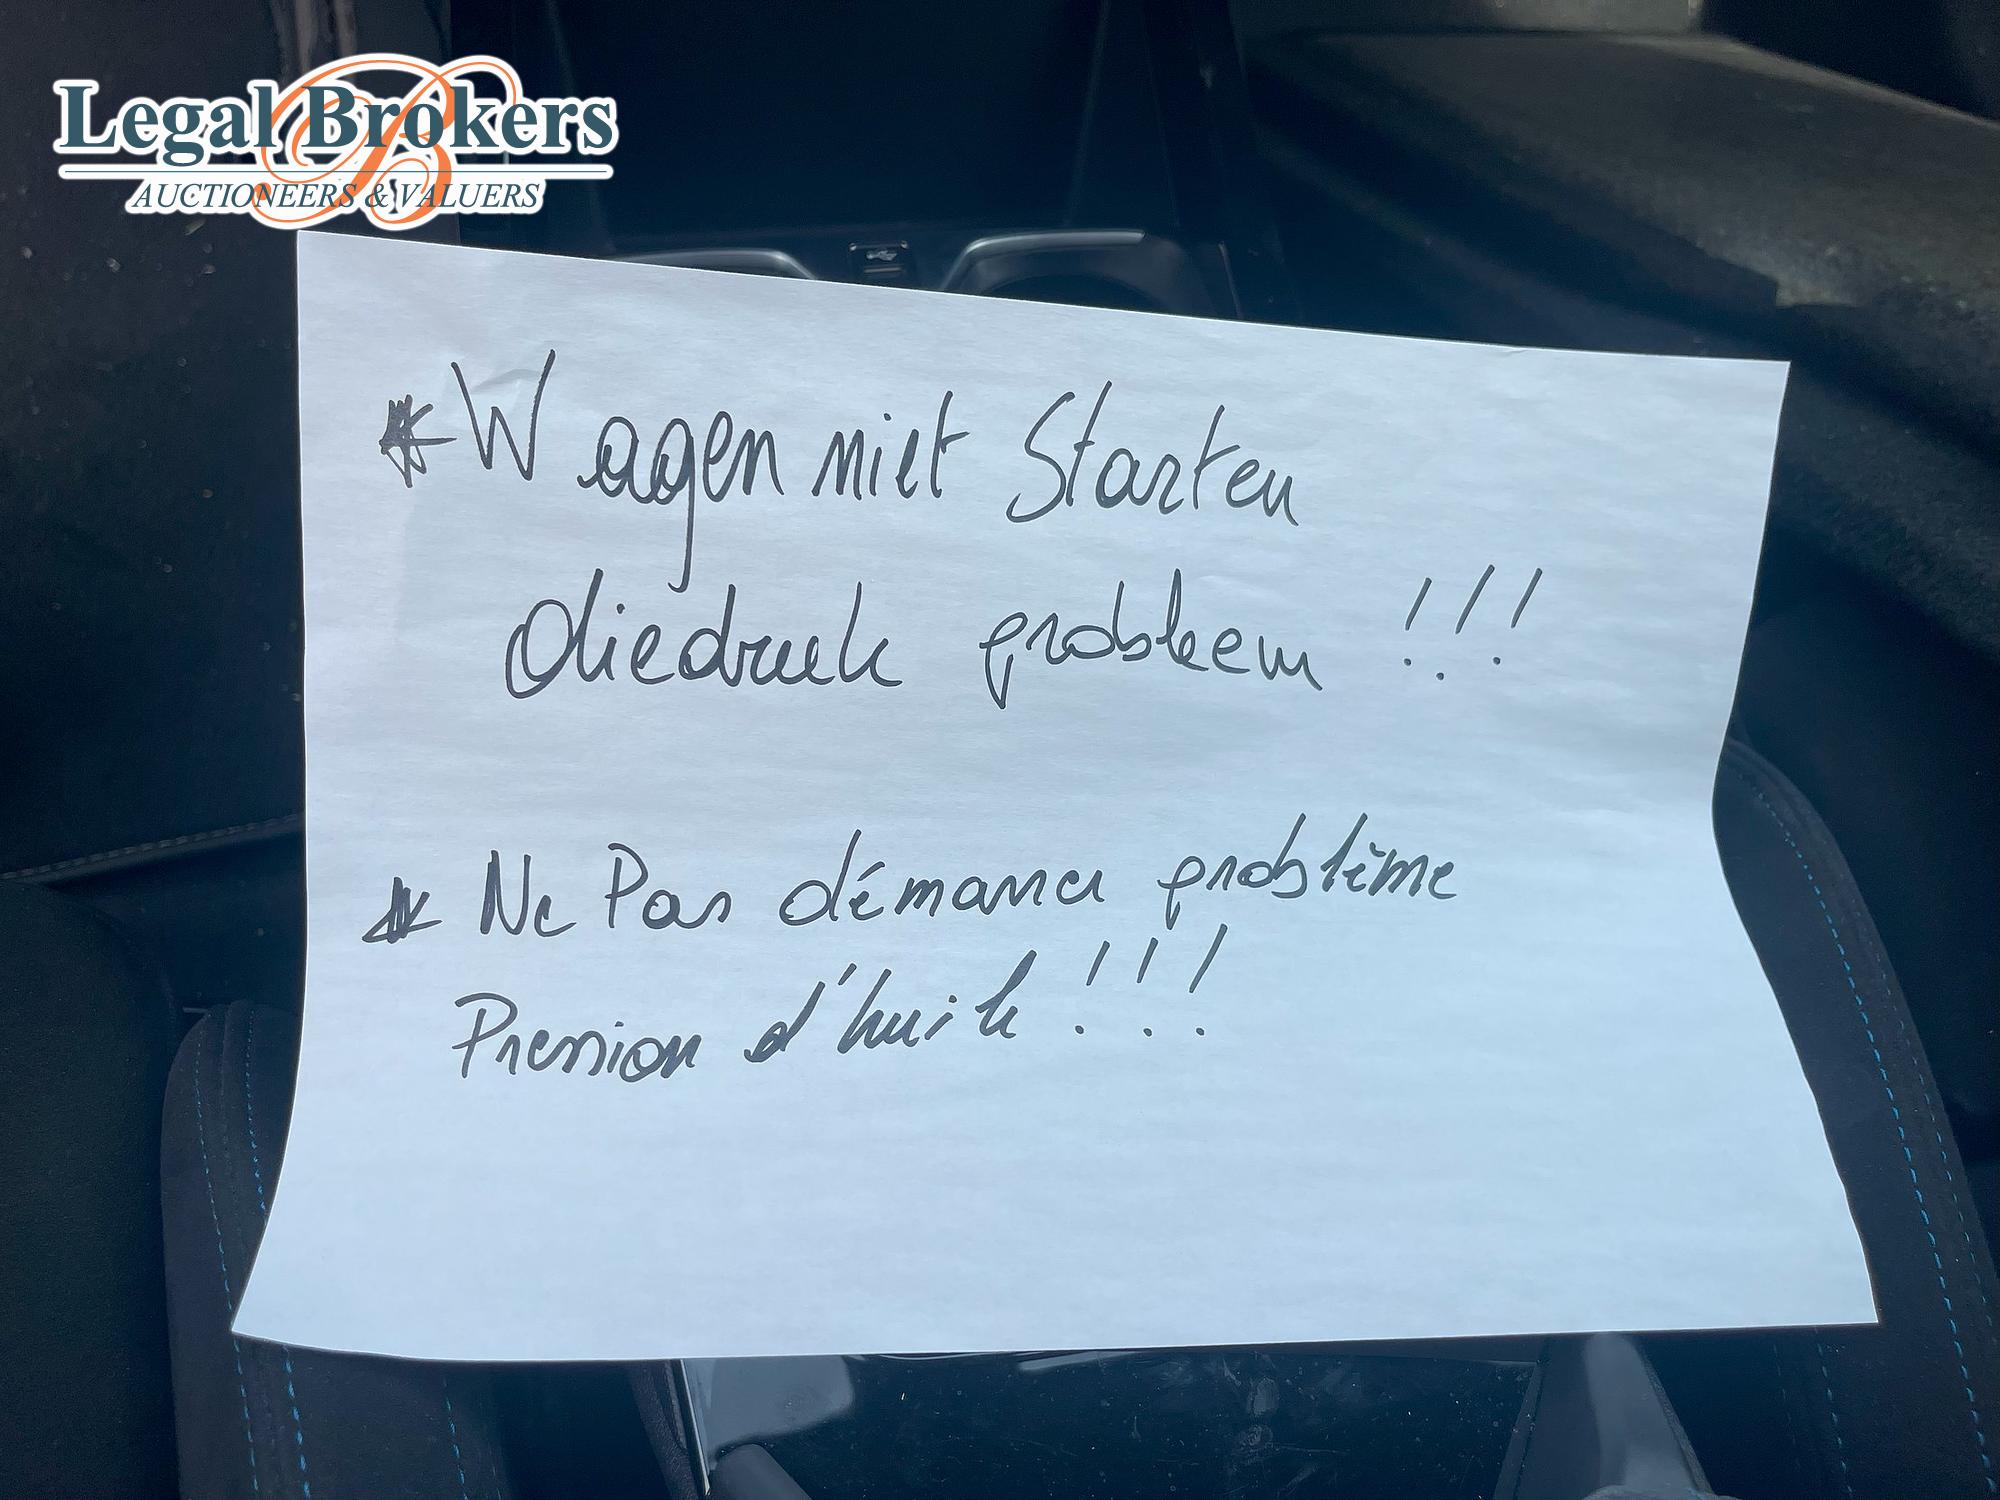 Legal Brokers
AUCTIONEERS & VALUERS
* Wagen niet Starten
Oliedruk probleem !!!
* Ne Pas démarrer problème
Pression d'huile !!!